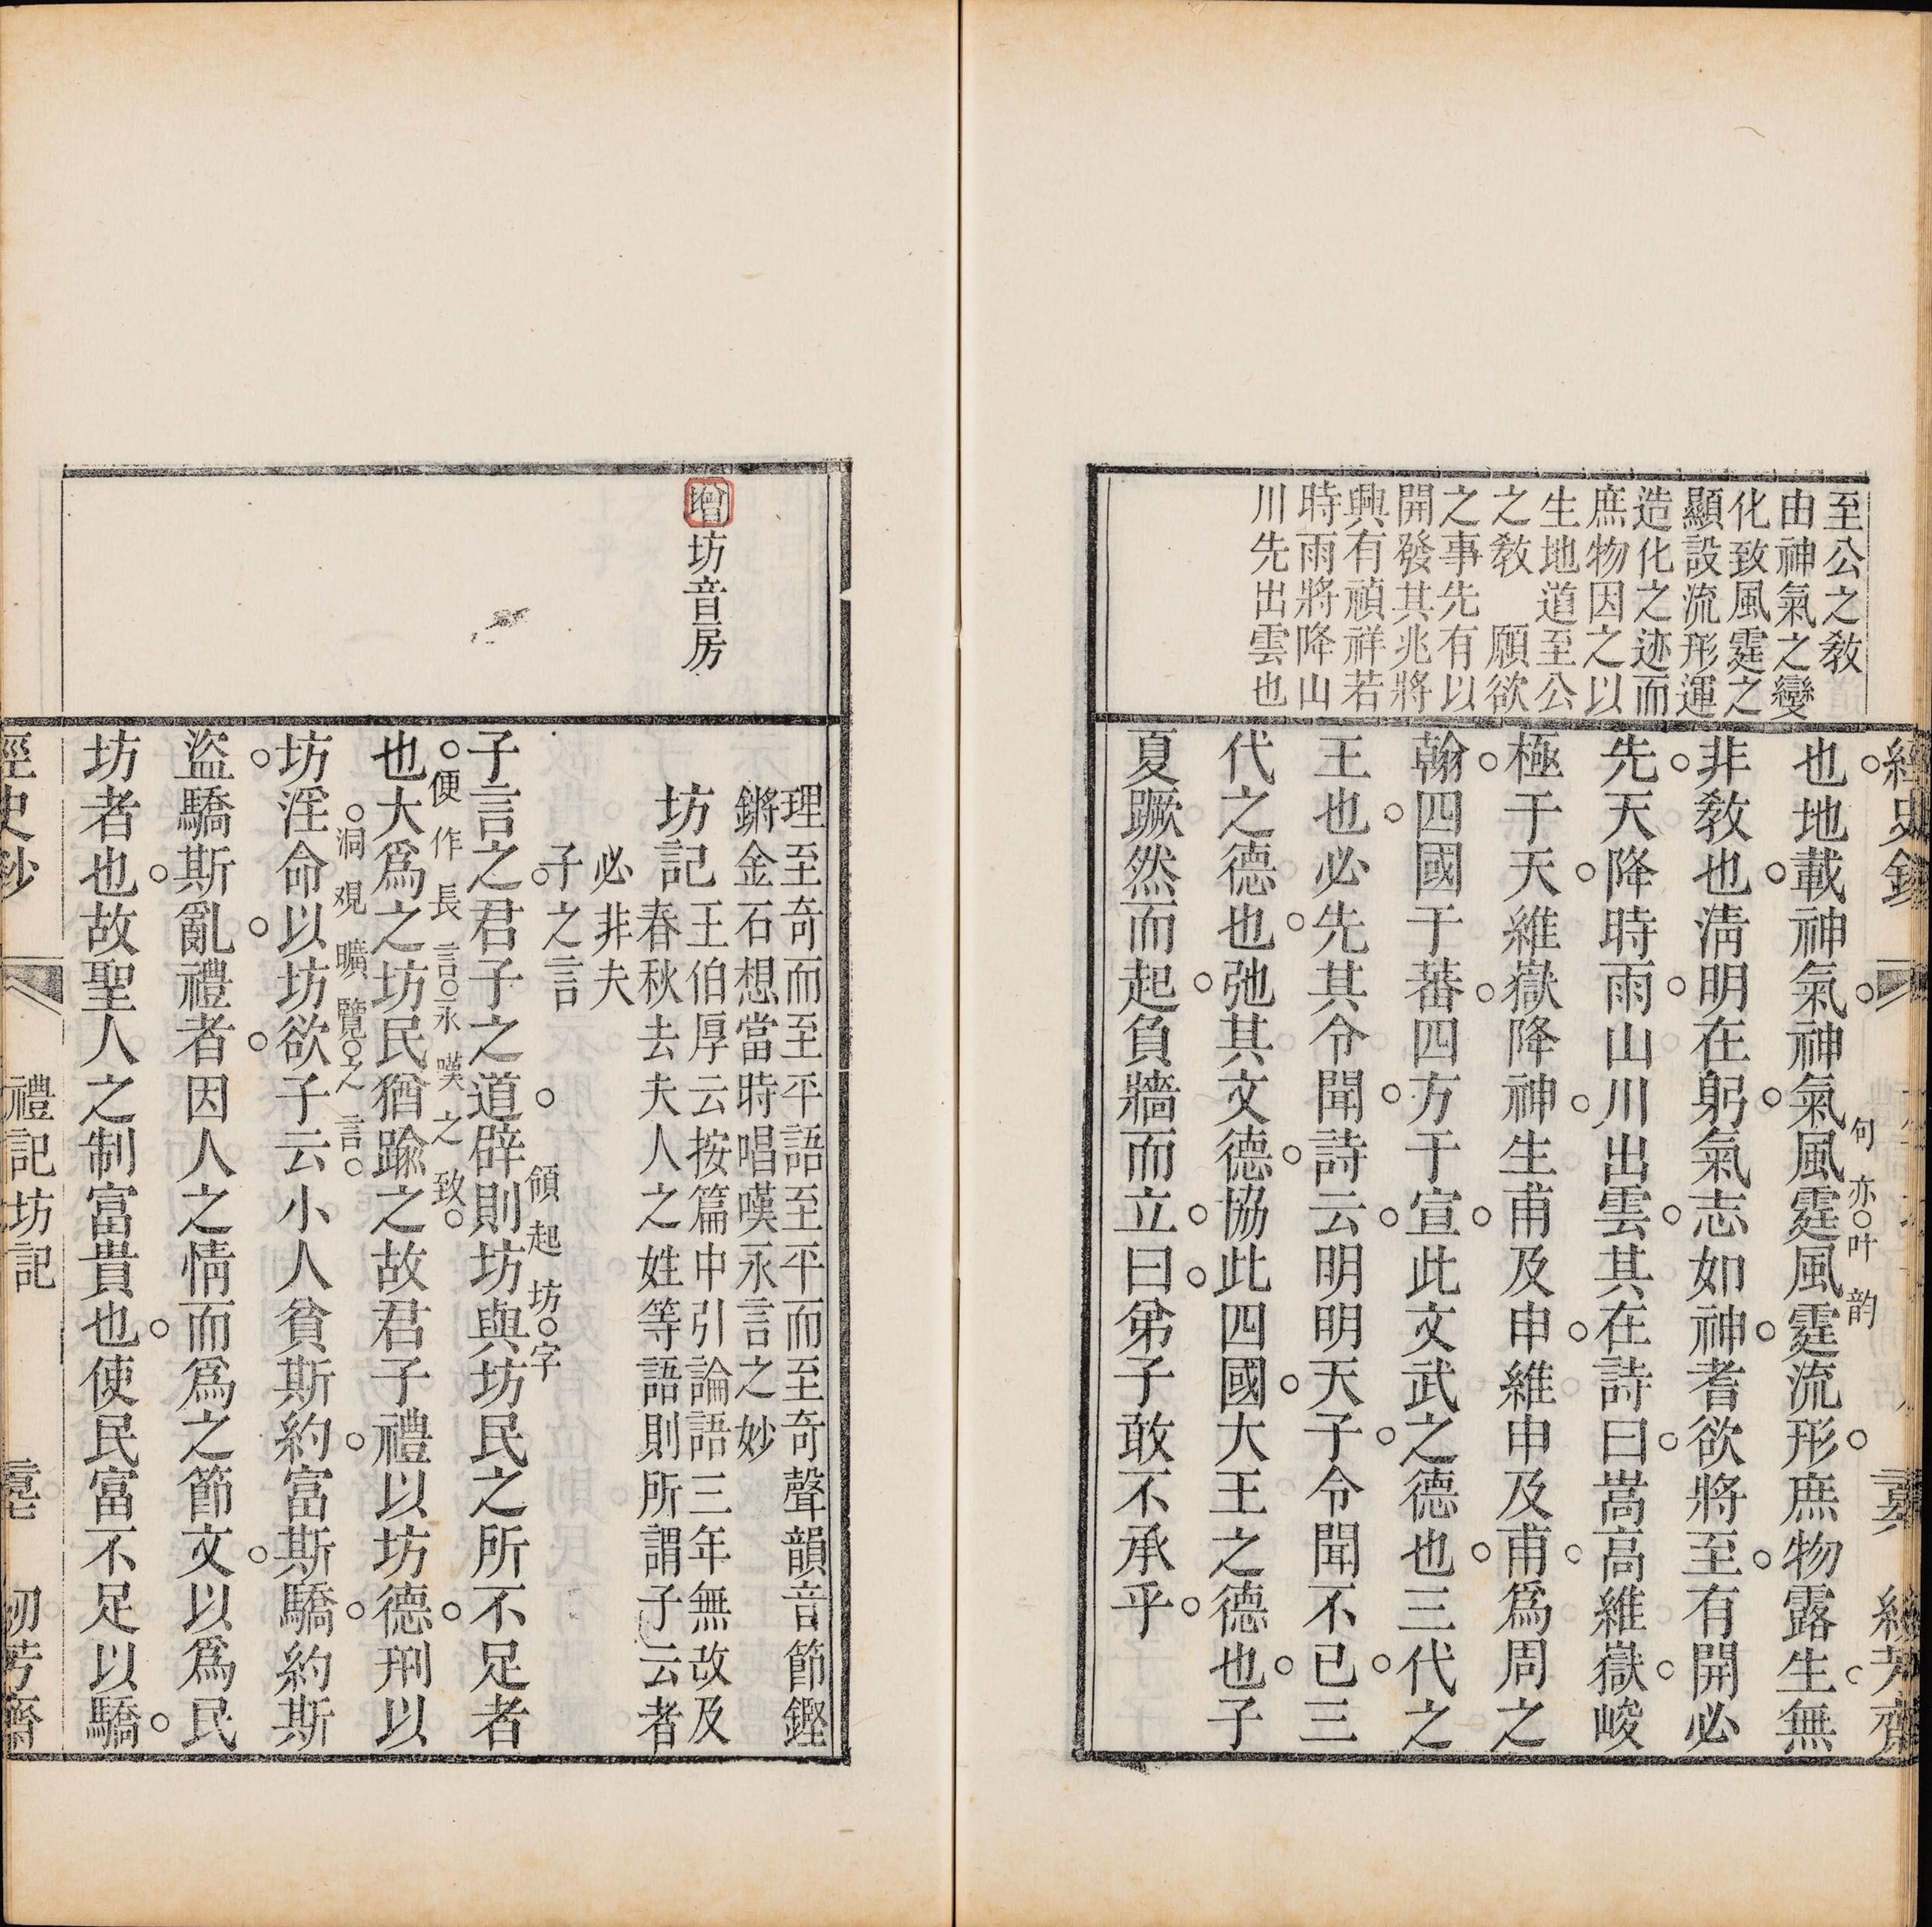 至公之敎
由神氣之變
化致風霆之
顯設流形運
造化之迹而
庶物因之以
生地道至公
之敎　願欲
之事先有以
開發其兆將
興有禎祥若
時雨將降山
川先出雲也
也地載神氣神氣風霆風霆流形庶物露生無
句亦叶韵
非敎也淸明在躬氣志如神耆欲將至有開必
先天降時雨山川出雲其在詩曰嵩高維嶽峻
極于天維嶽降神生甫及申維申及甫爲周之
翰四國于蕃四方于宣此文武之德也三代之
王也必先其令聞詩云明明天子令聞不已三
代之德也弛其文德協此四國大王之德也子
夏蹶然而起負牆而立曰弟子敢不承乎
增
坊音房
理至奇而至平語至平而至奇聲韻音節鏗
鏘金石想當時唱嘆永言之妙
坊記
王伯厚云按篇中引論語三年無改及
春秋去夫人之姓等語則所謂子云者
必非夫
子之言
子言之君子之道辟則坊與坊民之所不足者
領起坊字
也大爲之坊民猶踰之故君子禮以坊德刑以
便作長言永嘆之致
坊淫命以坊欲子云小人貧斯約富斯驕約斯
洞覌曠覽之言
盜驕斯亂禮者因人之情而爲之節文以爲民
坊者也故聖人之制富貴也使民富不足以驕
經史鈔
禮記坊記